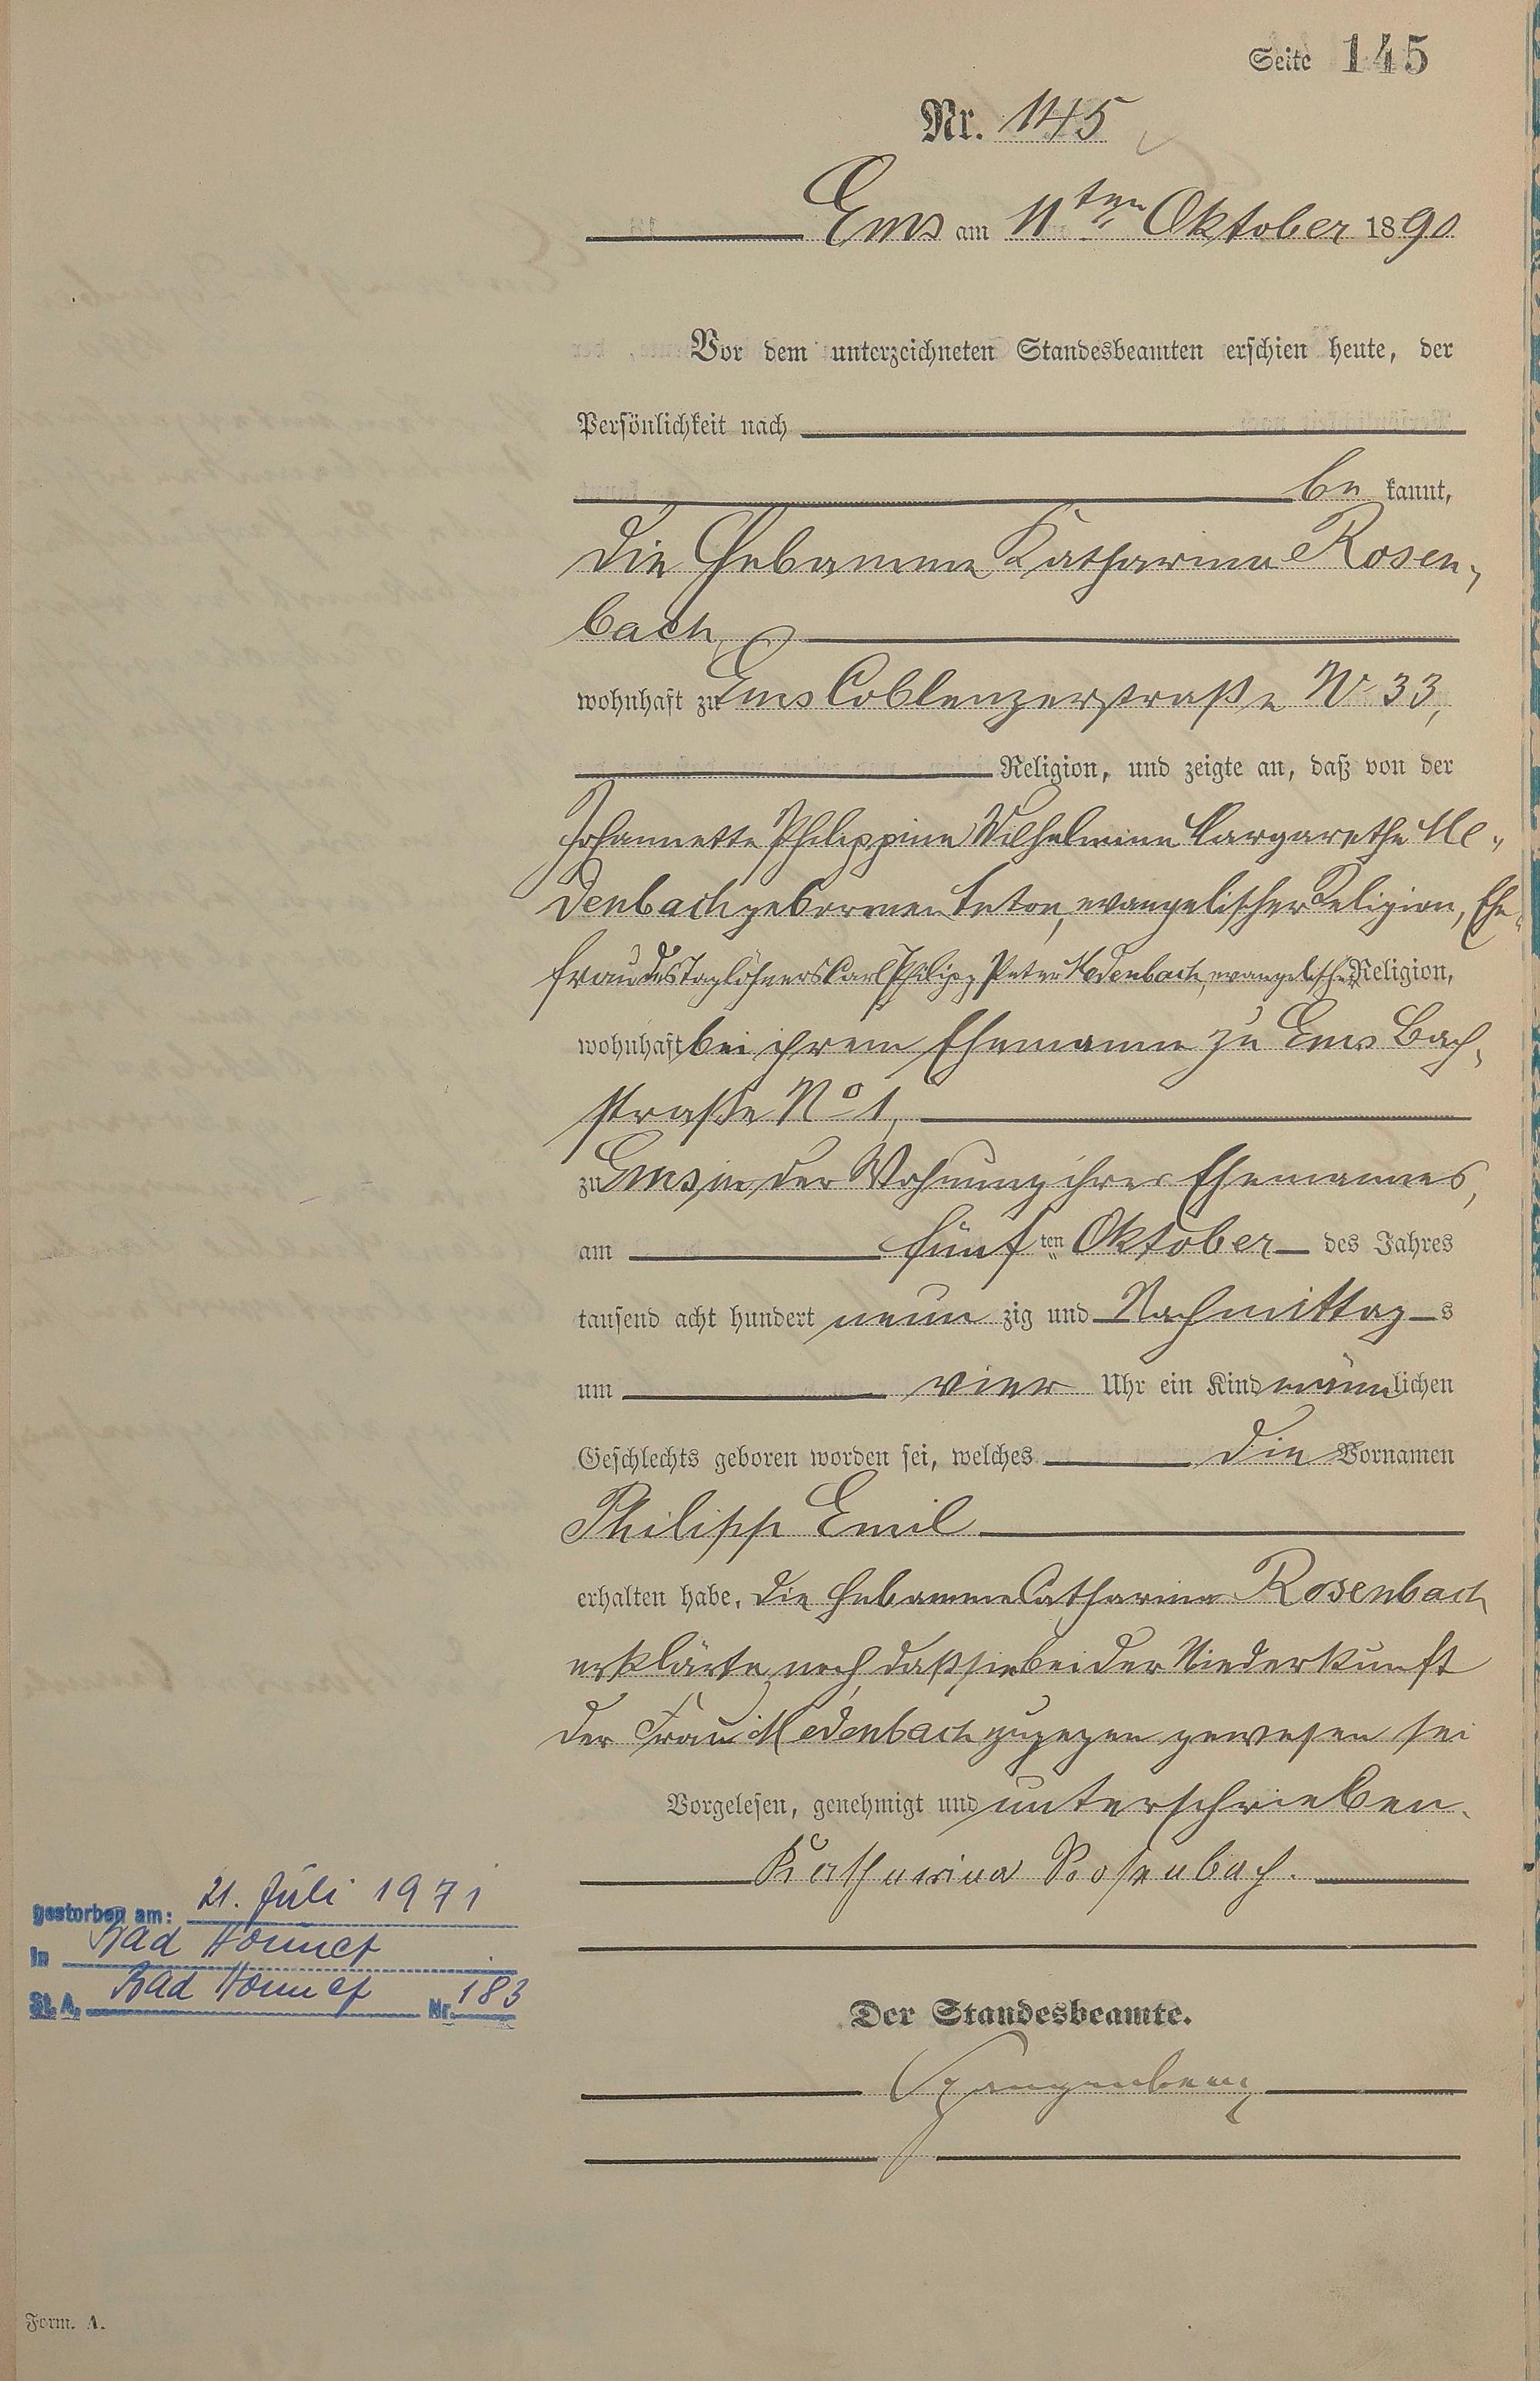 Seite 145
Nr. 145
Ems am 11ten Oktober 1890
Vor dem unterzeichneten Standesbeamten erschien heute, der
Persönlichkeit nach
be kannt,
die Hebamme Katharina Rosen-
bach
wohnhaft zu Ems Coblenzerstraße No 33,
Religion, und zeigte an, daß von der
Johannette Philippine Wilhelmine Margarethe Me-
denbach geborenen, evangelischer Religion, Ehe-
frau des Taglöhners Carl Philipp Peter Medenbach, evangelischer Religion,
wohnhaft bei ihrem Ehemanne zu Ems Bach-
straße No 1,
zu Ems in der Wohnung ihres Ehemannes,
am fünf ten Oktober des Jahres
tausend acht hundert neun zig und Nachmittag s
um vier Uhr ein Kind männlichen
Geschlechts geboren worden sei, welches die Vornamen
Philipp Emil
erhalten habe. Die Hebamme Catharina Rosenbach
erklärte noch, daß sie bei der Niederkunft
der Frau Medenbach zugegen gewesen sei
Vorgelesen, genehmigt und unterschrieben.
Katharina Rosenbach.
gestorben am: 21. Juli 1971
in Bad Honnef
St. A. Bad Honnef Nr. 183
Der Standesbeamte.
Form. A.